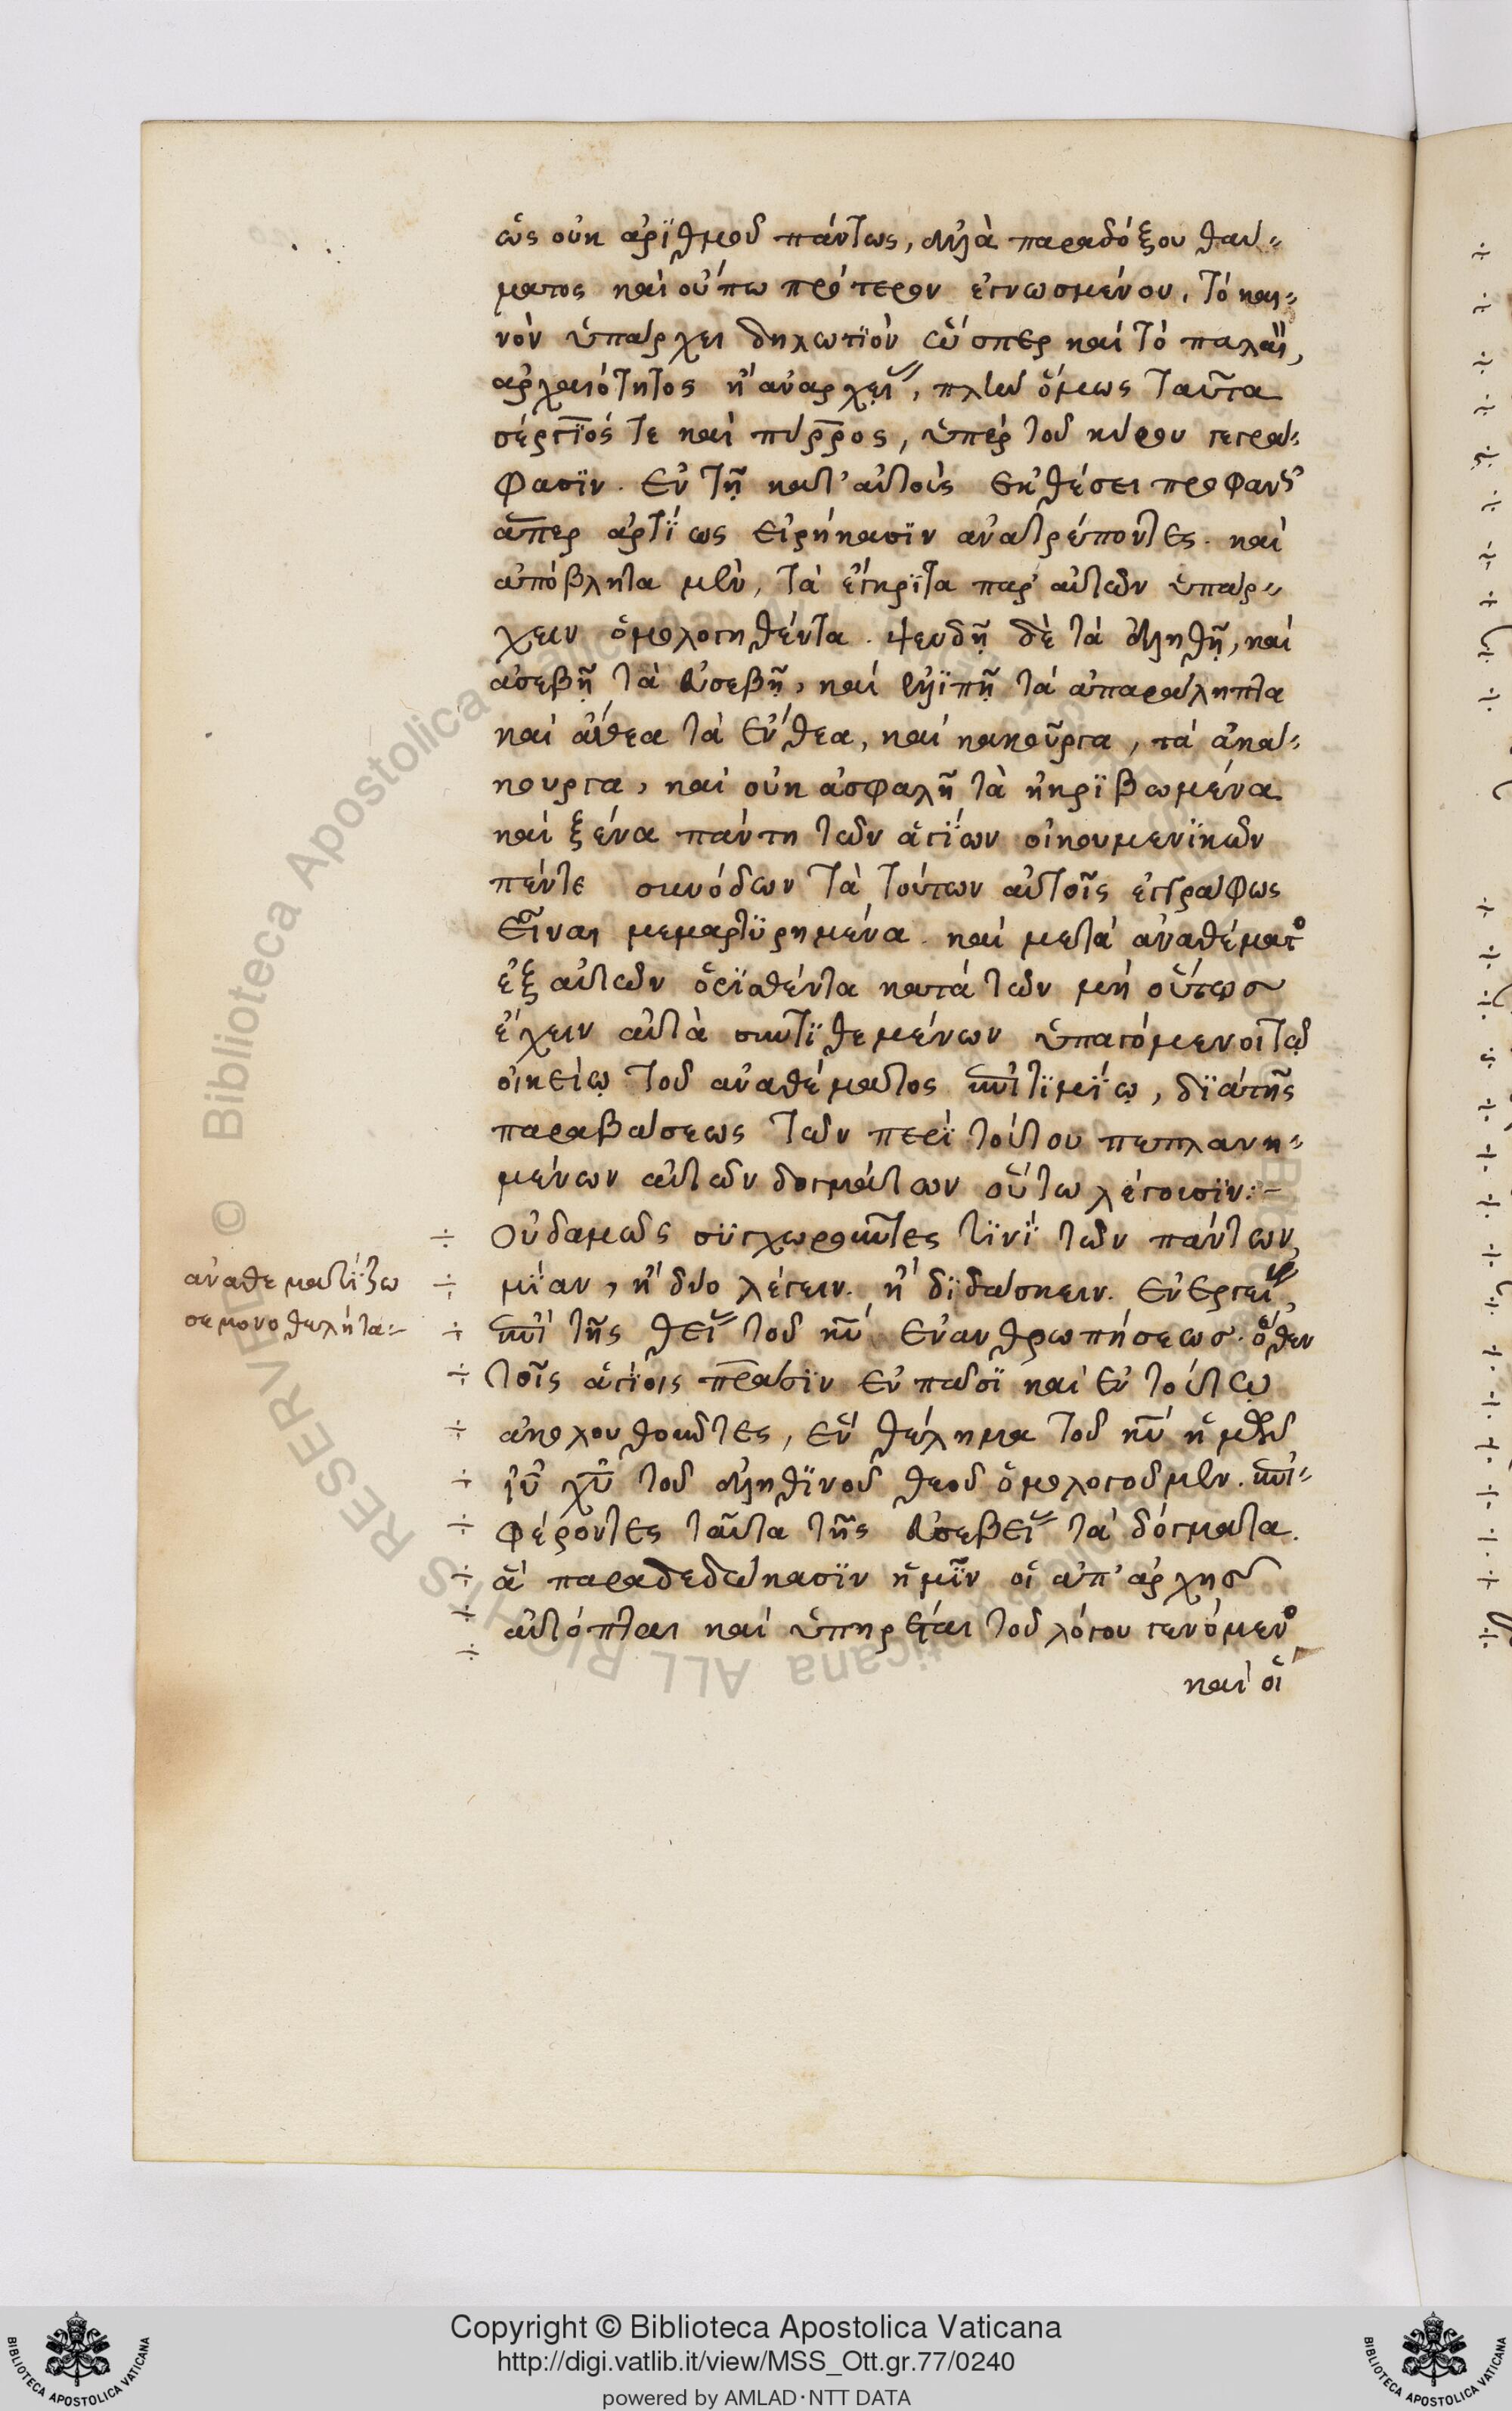 ὡς οὐκ ἀριθμοῦ πάντως, ἀλλὰ παραδόξου θαύ-
ματος καὶ οὔπω πρότερον ἐγνωσμένου, τὸ και-
νὸν ὑπάρχει δηλωτϊὸν ὥσπερ καὶ τὸ παλαι,
ἀρχαιότητος ἢ ἀναρχεί, πλὴν ὅμως ταῦτα
σέργϊός τε καὶ πύρρος, ὑπὲρ τοῦ κύρου γεγρά-
φασϊν. ἐν τῇ κατ' αὐτοὺς ἐκθέσει προφανῶς
ἅπερ ἀρτίως εἰρήκασϊν ἀνατρέποντες. καὶ
ἀπόβλητα μὲν, τὰ ἔγκρϊτα παρ' αὐτῶν ὑπάρ-
χειν ὁμολογηθέντα. ψευδῆ δὲ τὰ ἀληθῆ, καὶ
ἀσεβῆ τὰ εὐσεβῆ, καὶ ἐλλϊπῆ τὰ ἀπαράληπτα
καὶ ἄθεα τὰ ἔνθεα, καὶ κακοῦργα, τὰ ἀκα-
κουργα, καὶ οὐκ ἀσφαλῆ τὰ ἠκρϊβωμένα
καὶ ξένα πάντη τῶν ἁγίων οἰκουμενϊκῶν
πέντε συνόδων τὰ τούτων αὐτοῖς ἐγγράφως
εἶναι μεμαρτϋρημένα. καὶ μετὰ ἀναθέματο
ἐξ αὐτῶν ὁρϊσθέντα κατὰ τῶν μὴ οὕτως
ἔχειν αὐτὰ συντϊθεμένων ὑπαγόμενοι τῷ
οἰκείῳ τοῦ ἀναθέματος ἐπϊτϊμίῳ, δϊὰ τῆς
παραβάσεως τῶν περὶ τούτου πεπλανη-
μένων αὐτῶν δογμάτων οὕτω λέγουσϊν:-
÷ Οὐδαμῶς συγχωροῦντες τϊνϊ τῶν πάντων,
ἀναθεματίζω ÷ μίαν, ἢ δύο λέγειν. ἢ δϊδάσκειν. ἐνεργεί,
σε μονοθελήτα- ÷ ἐπὶ τῆς θεί τοῦ κυ ἐνανθρωπήσεως. ὅθεν
÷ τοῖς ἁγίοις πράσϊν ἐν πᾶσϊ καὶ ἐν τούτῳ
÷ ἀκολουθοῦντες, ἓν θέλημα τοῦ κυ ἡμῶν
÷ ιυ χυ τοῦ ἀληθϊνοῦ θεοῦ ὁμολογοῦμεν. ἐπι-
÷ φέροντες ταῦτα τῆς εὐσεβεί τὰ δόγματα.
÷ ἃ παραδεδώκασϊν ἡμῖν οἱ ἀπ' ἀρχῆς
÷ αὐτόπται καὶ ὑπηρέται τοῦ λόγου γενόμενο
÷
καὶ οἱ
© Biblioteca Apostolica Vaticana ALL RIGHTS RESERVED
Copyright © Biblioteca Apostolica Vaticana
http://digi.vatlib.it/view/MSS_Ott.gr.77/0240
powered by AMLAD·NTT DATA
BIBLIOTECA APOSTOLICA VATICANA
BIBLIOTECA APOSTOLICA VATICANA